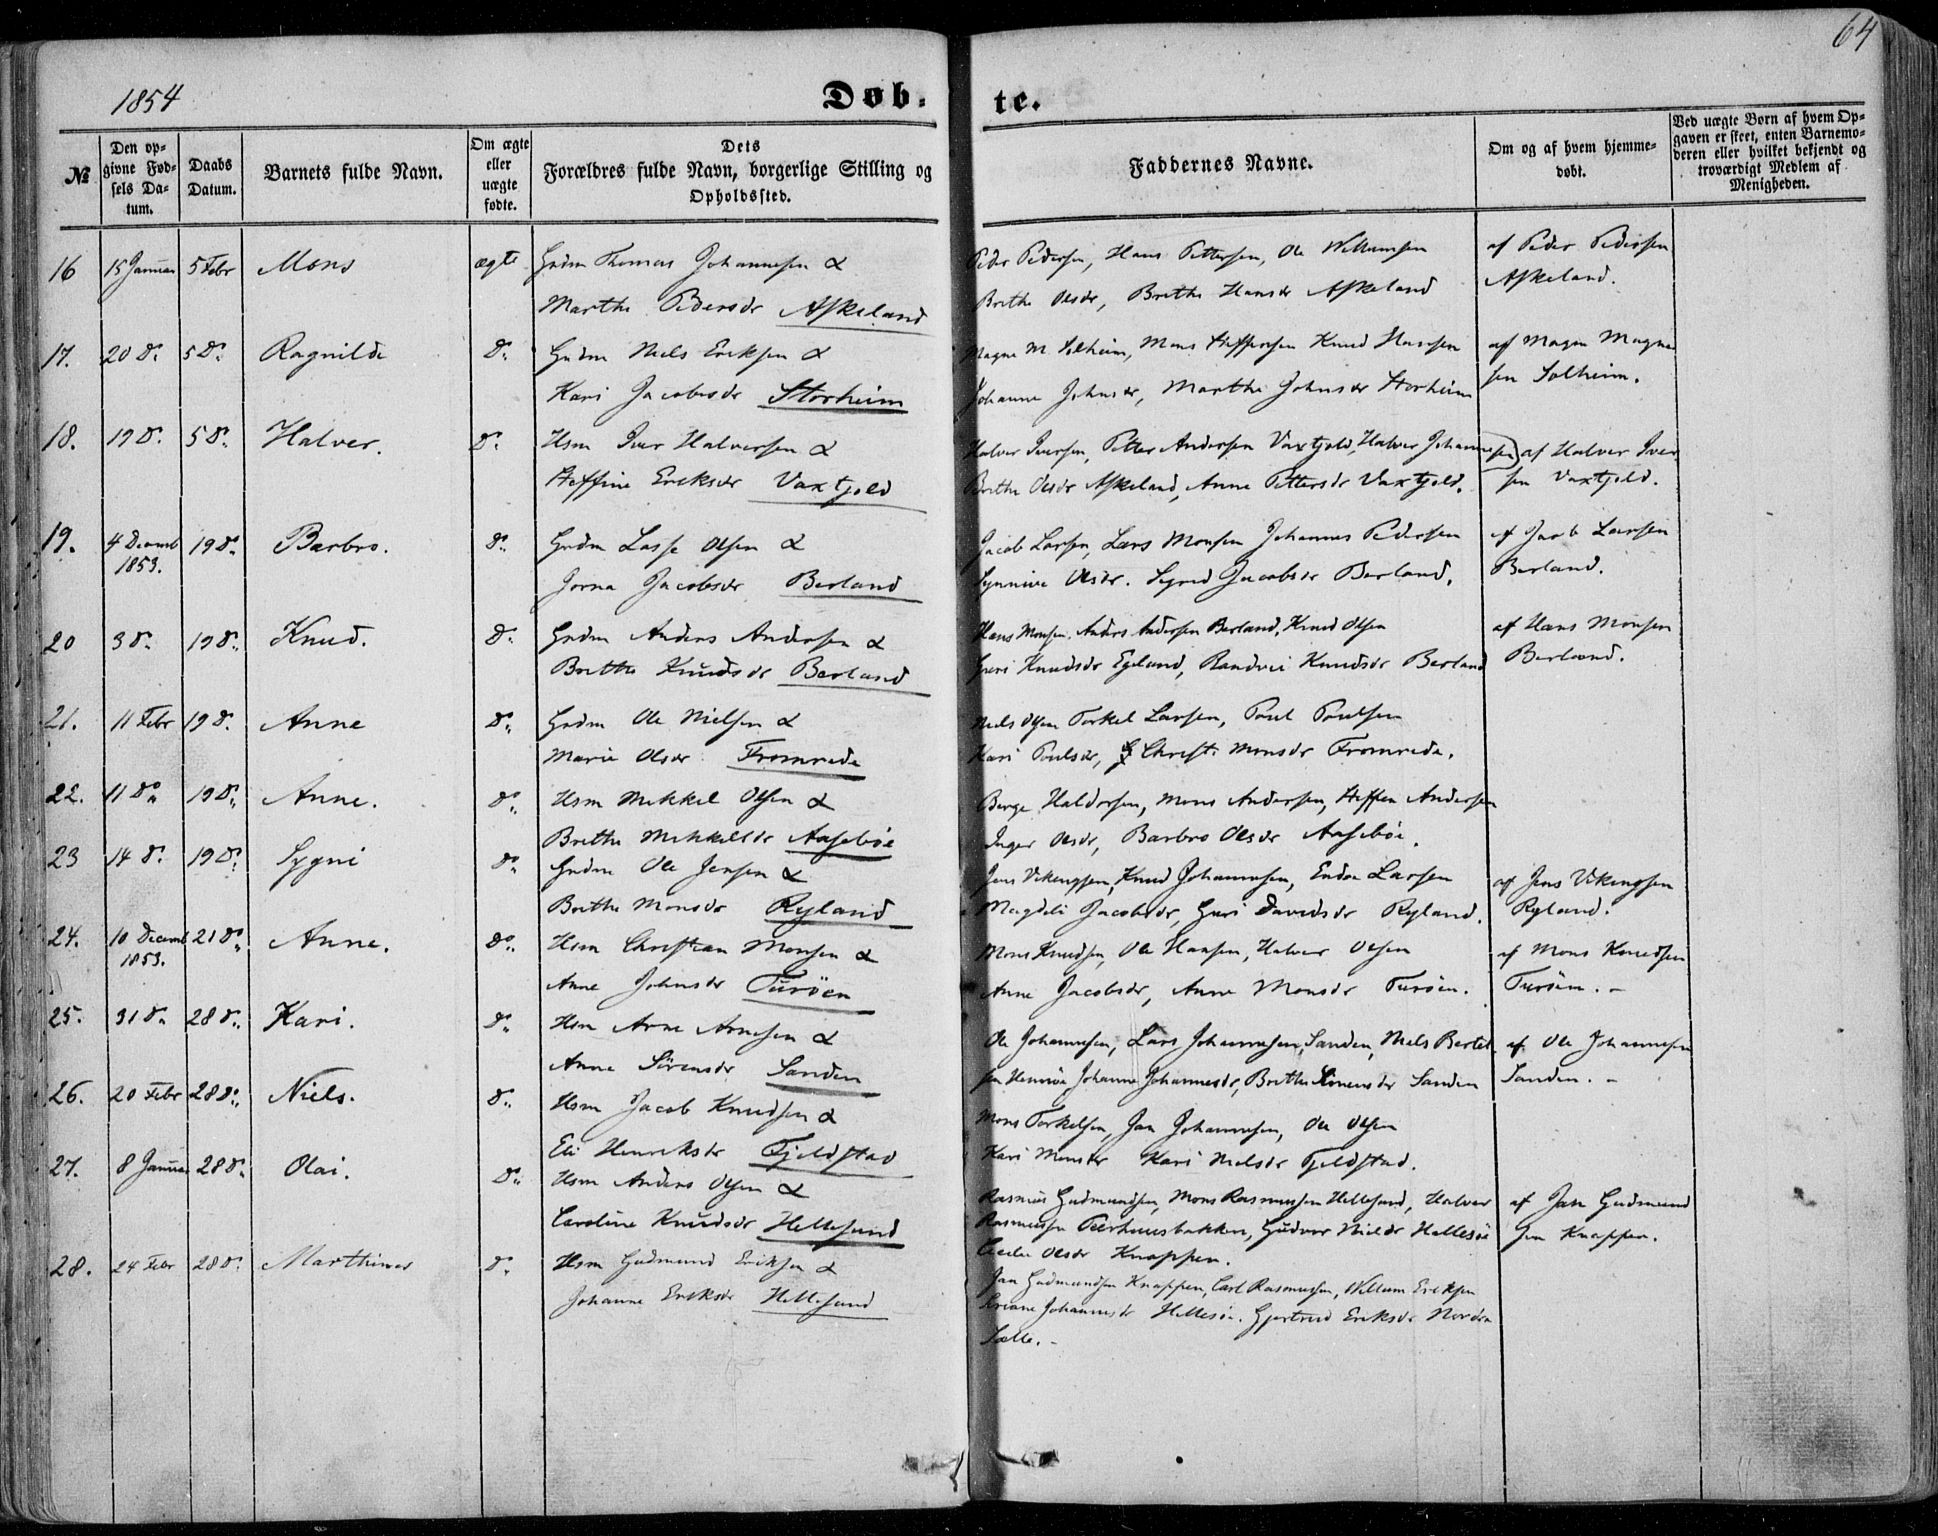 64
1854
Døb-
te.
№
Den op-
givne Fød-
sels Da-
tum.
Daabs
Datum.
Barnets fulde Navn.
Om ægte
eller
uægte
fødte.
Dets
Forældres fulde Navn, borgerlige Stilling og
Opholdssted.
Faddernes Navne.
Om og af hvem hjemme-
døbt.
Ved uægte Børn af hvem Op-
gaven er skeet, enten Barnemo-
deren eller hvilket bekjendt og
troværdigt Medlem af
Menigheden.
16 15 Januar 5 Febr Mons ægte Grdm Thomas Johannesen &
Marthe Pedersdr Askeland
Peder Pedersen, Hans Pettersen, Ole Willumsen
Brithe Olsdr, Brithe Hansdr Askeland
af Peder Pedersen
Askeland.
17. 20 D. 5 D. Ragnilde D. Grdm Niels Eriksen &
Kari Jacobsdr Storheim
Magne M. Solheim, Mons Steffensen Knud Hansen
Johanne Johnsdr, Marthe Johnsdr Storheim
af Magne Magne
sen Solheim.
18. 19 D. 5 D. Halver. D. Hsm Iver Halversen &
Steffine Eriksdr Vaxtjold
Halver Iversen, Petter Andersen Vaxtjold, Halver Johannesen
Brithe Olsdr Askeland, Anne Pettersdr Vaxtjold.
af Halver Iver
sen Vaxtjold.
19. 4 Decemb 19 D. Barbro. D. Grdm Lasse Olsen &
1853.
Jorna Jacobsdr Berland
Jacob Larsen, Lars Monsen Johannes Pedersen
Synnive Olsdr. Sigrid Jacobsdr Berland.
af Jacob Larsen
Berland.
20 3 D. 19 D. Knud. D. Grdm Anders Andersen &
Brithe Knudsdr Berland
Hans Monsen. Anders Andersen Berland, Knud Olsen
Guri Knudsdr Egeland, Randvei Knudsdr Berland
af Hans Monsen
Berland.
21. 11 Febr 19 D. Anne D. Grdm Ole Nielsen &
Marie Olsdr Fromrede
Niels Olsen Torkel Larsen, Poul Poulsen
Kari Poulsdr, Christi Monsdr Fromrede.
22. 11 D. 19 D. Anne. D. Hsm Mikkel Olsen &
Brithe Mikkelsdr Aasebøe
Berge Haldorsen, Mons Andersen, Steffen Andersen
Inger Olsdr, Barbro Olsdr Aasebøe.
23 14 D. 19 D. Sygni D. Grdm Ole Jensen &
Brithe Monsdr Ryland
Jens Vikingsen, Knud Johannesen, Endre Larsen
Magdeli Jacobsdr, Guri Davidsdr Ryland.
af Jens Vikingsen
Ryland.
24. 10 Decemb 21 D. Anne. D. Hsm Christian Monsen &
1853.
Anne Johnsdr Turøen
Mons Knudsen, Ole Hansen, Halver Olsen
Anne Jacobsdr, Anne Monsdr Turøen.
af Mons Knudsen
Turøen. -
25. 31 D. 28 D. Kari. D. Hsm Arne Arnesen &
Anne Sörensdr Sanden
Ole Johannesen, Lars Johannesen, Sanden, Niels Bertel
sen Johanne Johannesdr, Brithe Simensdr Sanden
af Ole Johannesen
Sanden. -
26. 20 Febr 28 D. Niels. D. Hsm Jacob Knudsen &
Eli Henriksdr Fjeldstad
Mons Torkelsen, Jan Johannesen, Ole Olsen
Kari Monsdr Kari Nielsdr Fjeldstad.
27. 8 Januar 28 D. Olai. D. Hsm Anders Olsen &
Caroline Knudsdr Hellesund
Rasmus Gudmundsen, Mons Rasmussen Hellesund, Halver
Rasmussen Gudvor Hellesöe
Cecilie Olsdr Knappen.
af Jan Gudmund
sen Knappen.
28. 24 Febr 28 D. Marthinus D. Hsm Gudmund Eriksen &
Johanne Eriksdr Hellesund
Jan Gudmundsen Knappen, Carl Rasmussen, Willum Eriksen
Johannesdr Hellesöe. Gjertrud Eriksdr Nordre
Sælle. -